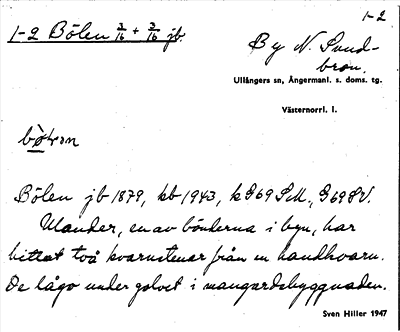 1-2
1-2 Bölen 3/16 + 3/16 jb.
By N. Sund-
bron.
Ullångers sn, Ångermanl. s. doms. tg.
Västernorrl. l.
Bölen jb 1879, kb 1943, k G69 SM, G 69 SV.
Ulander, en av bönderna i byn, har
hittat två kvarnstenar från en handkvarn.
De lågo under golvet i mangårdsbyggnaden.
Sven Hiller 1947